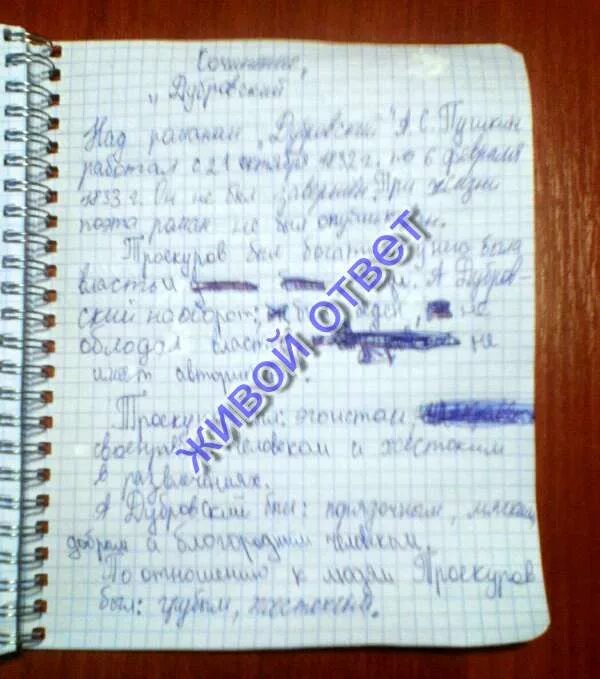 Сочинение,
„Дубровский"
Над раманам „Дубровский" А.С. Пушкин
работал с 21 октября 1832 г. по 6 февраля
1833 г. Он не был завершен. При жизни
поэта раман не был опублик ан.
Троскуров был богатым у него была
власть и А Дубров-
ский наоборот; беден, не
облодал власт не
имел автори
Троскур эгоистом,
своенрав человеком и жестоким
в развлечениях.
А Дубровский был: порядочным, мягким,
добрым а благородным человеком.
По отношению к людям Троекуров
был: грубым, жестоким.
ЖИВОЙ ОТВЕТ